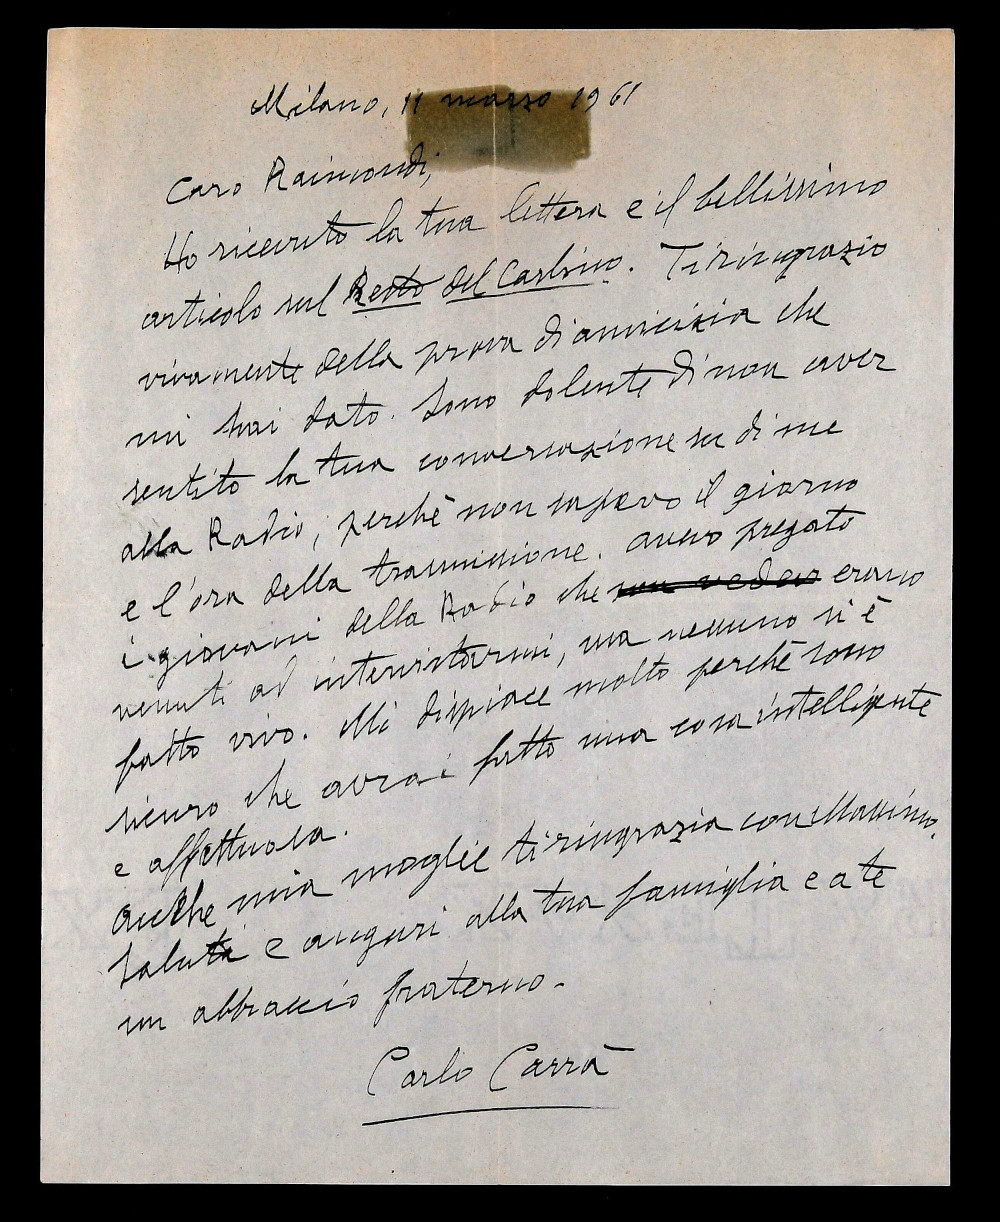 Milano, 11 marzo 1961
Caro Raimondi,
Ho ricevuto la tua lettera e il bellissimo
articolo sul Resto del Carlino. Ti ringrazio
vivamente della prova di amicizia che
mi hai dato. Sono dolente di non aver
sentito la tua conversazione su di me
alla Radio, perchè non sapevo il giorno
e l'ora della trasmissione. avevo pregato
i giovani della Radio che erano
venuti ad intervistarmi, ma nessuno si è
fatto vivo. Mi dispiace molto perchè sono
sicuro che avrai fatto una cosa intelligente
e affettuosa.
anche mia moglie ti ringrazia con Massimo.
Saluti e auguri alla tua famiglia e a te
un abbraccio fraterno.
Carlo Carrà